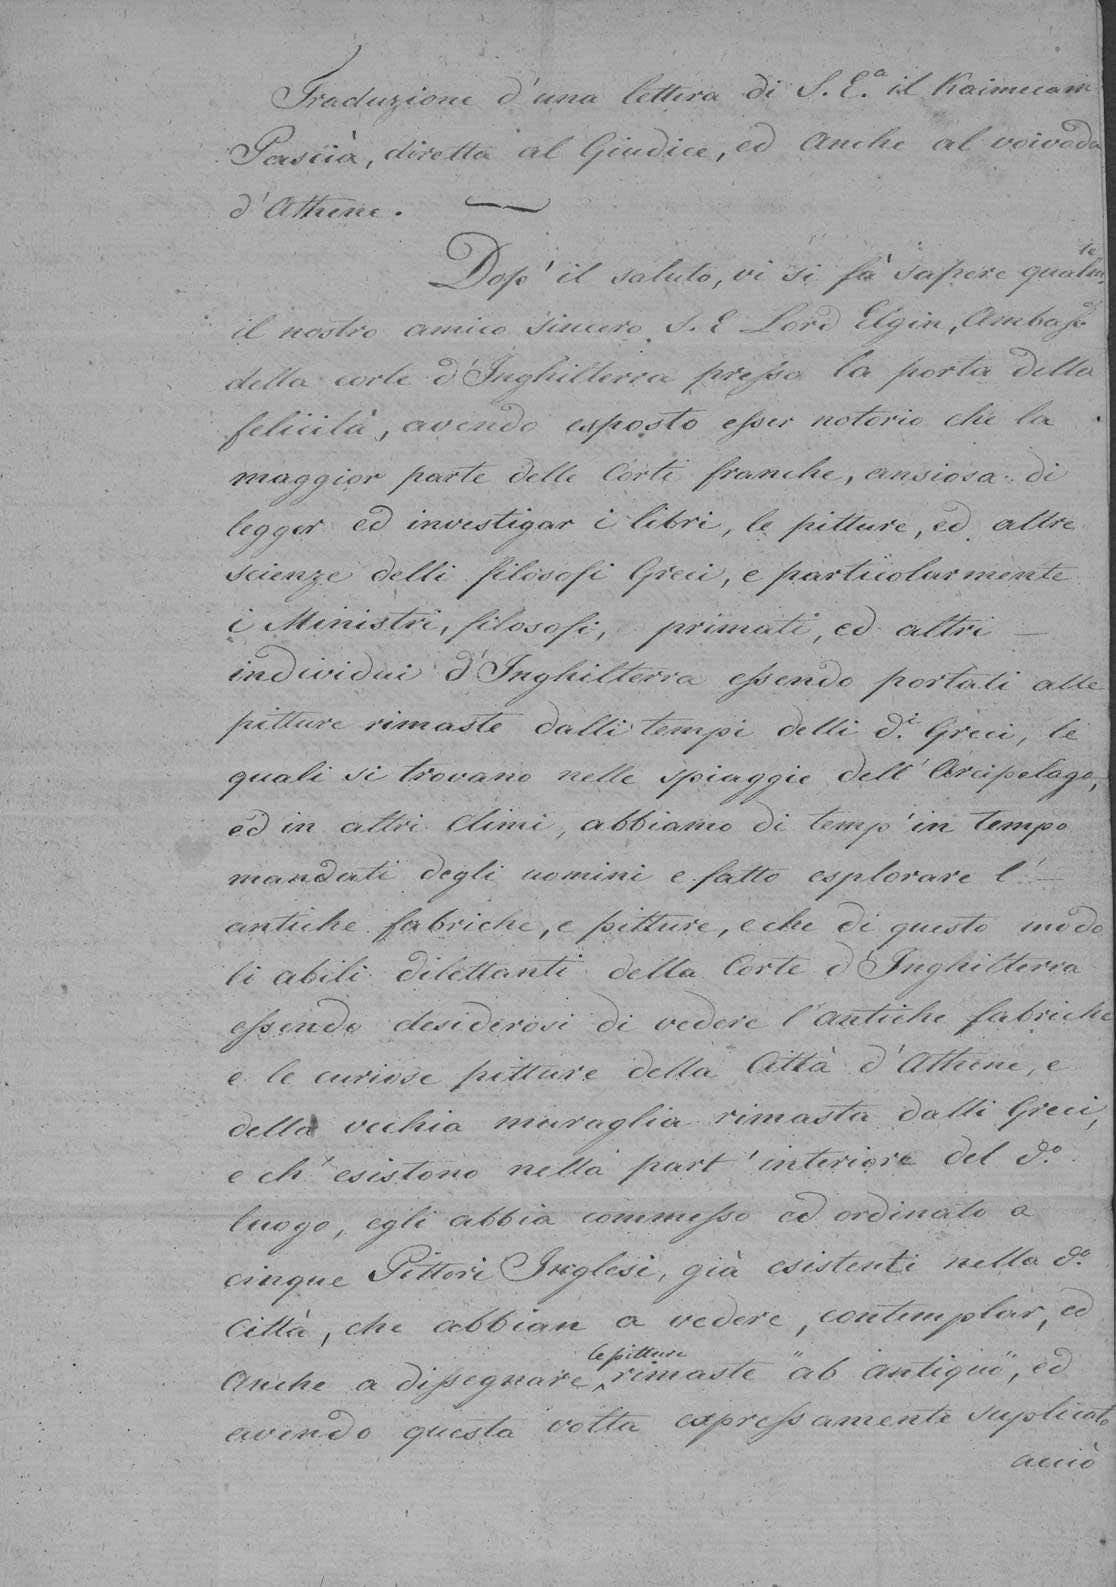 Traduzione d'una lettera di S. E.a il Kaimecam
Pascià, diretta al Giudice, ed anche al voivoda
d'Athene.
Dop' il saluto, vi si fà sapere qualm.te
il nostro amico sincero S. E Lord Elgin, Ambasr.
della corte d'Inghilterra presso la porta della
felicità, avendo esposto esser notorio che la
maggior parte delle Corti franche, ansiosa di
legger ed investigar i libri, le pitture, ed altre
scienze delli filosofi Greci, e particolarmente
i Ministri, filosofi, primati, ed altri —
individui d'Inghilterra essendo portati alle
pitture rimaste dalli tempi delli d.i Greci, le
quali si trovano nelle spiaggie dell'Arcipelago,
ed in altri climi, abbiamo di temp' in tempo
mandati degli uomini e fatto esplorare l' —
antiche fabriche, e pitture, e che di questo modo
li abili dilettanti della Corte d'Inghilterra
essendo desiderosi di vedere l'antiche fabriche
e le curiose pitture della Città d'Athene, e
della vechia muraglia rimasta dalli Greci,
e ch' esistono nella part' interiore del d.o
luogo, egli abbia commesso ed ordinato a
cinque Pittori Inglesi, già esistenti nella d.a
Città, che abbian a vedere, contemplar, ed
anche a dissegnare le pitture rimaste "ab antiquo", ed
avendo questa volta expressamente suplicato
acciò